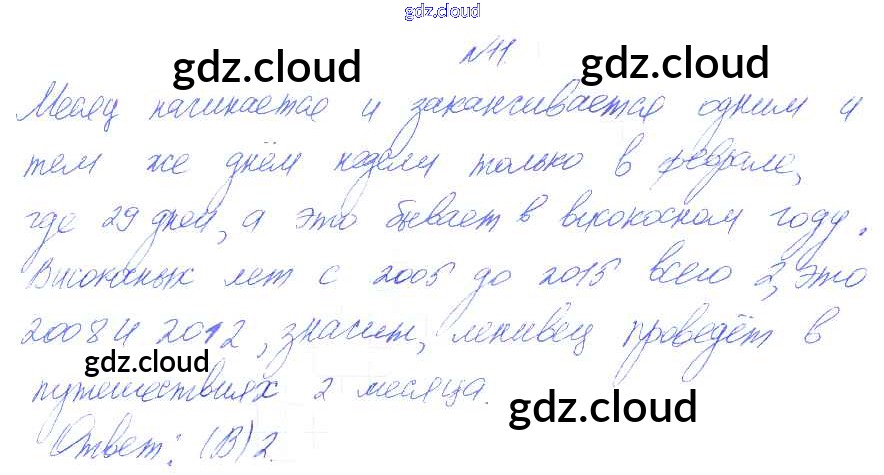 gdz.cloud
gdz.cloud №11. gdz.cloud
Месяц начинается и заканчивается одним и
тем же днём недели только в феврале,
где 29 дней, а это бывает в високосном году.
Високосных лет с 2005 до 2015 всего 2, это
2008 и 2012, значит, ленивец проведёт в
gdz.cloud
путешествиях 2 месяца.
gdz.cloud
Ответ: (В) 2.